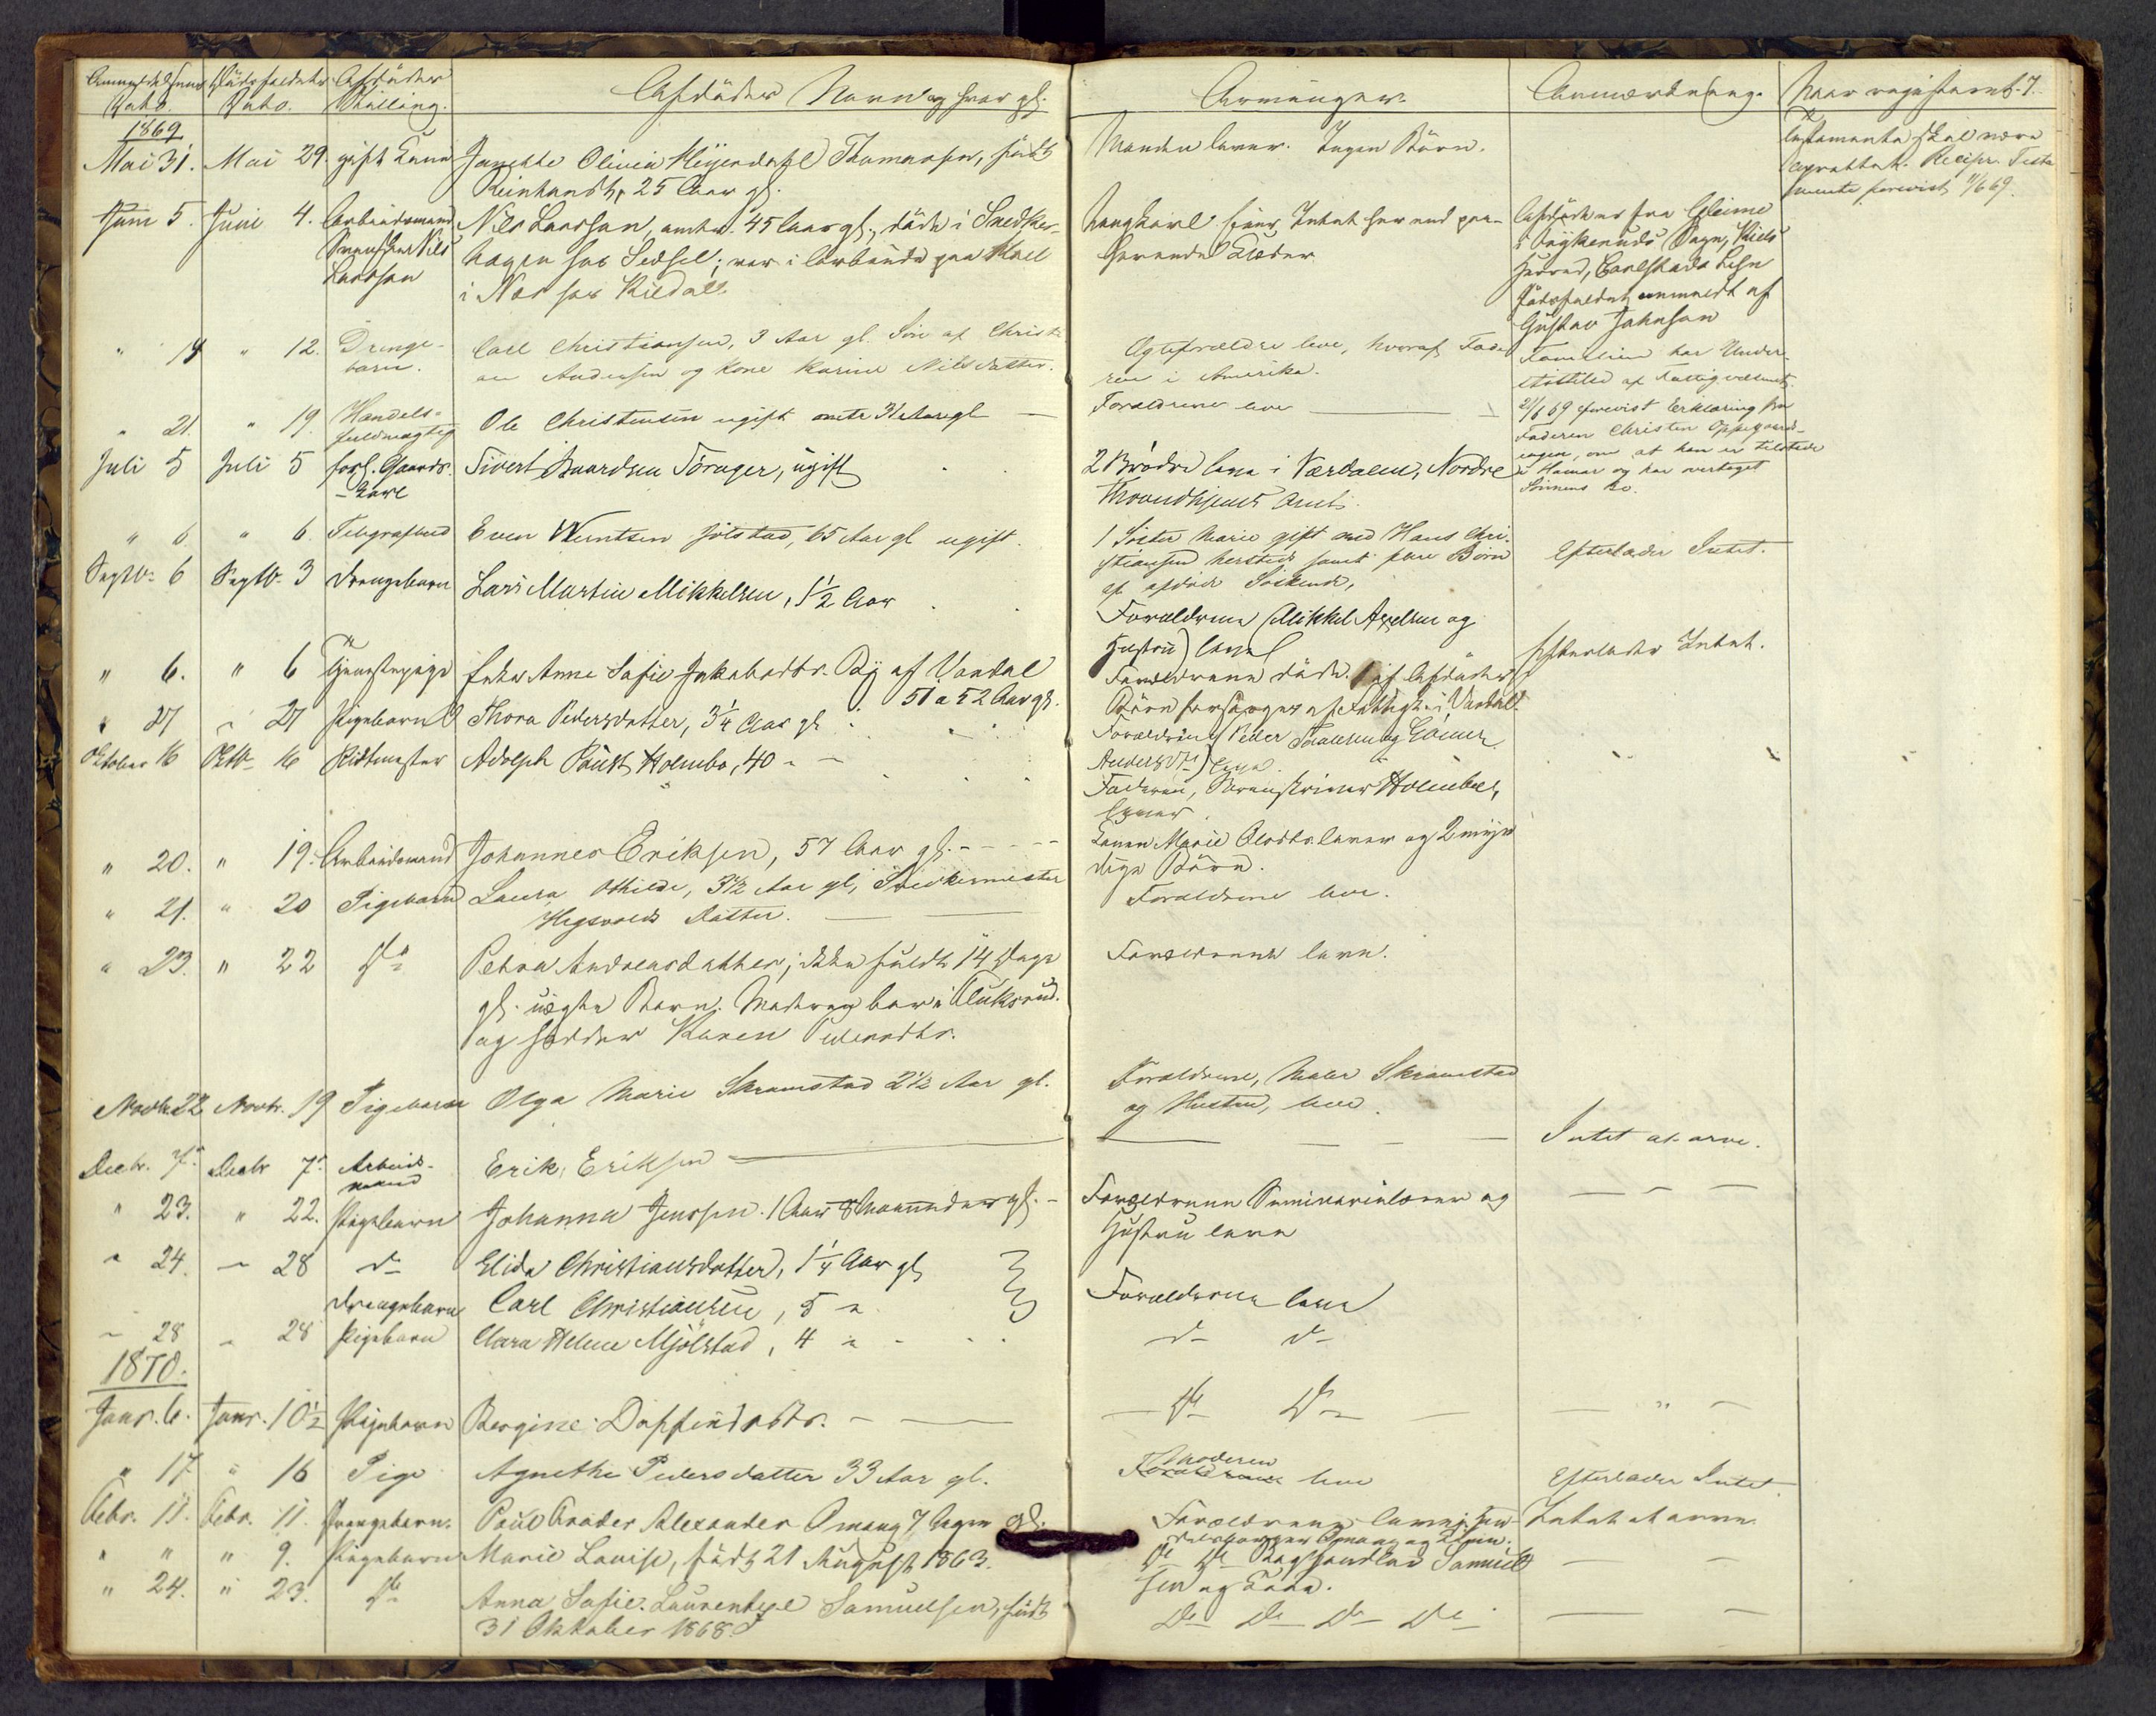 Anmeldelsens Dato.
Dødsfaldets Dato.
Afdødes Stilling.
Afdødes Navn og hvor gl.
Arvinger.
Anmærkning.
Naar registreret?
1869
Mai 31. Mai 29. gift Kone Janette Olivia Heyerdahl Thomassen, født
Reinhardt, 25 Aar gl.
Manden lever. Ingen Børn.
Testamente skal være
oprettet. Recipr. Testa
mente forevist
Juni 5. Juni 4. Arbeidsmand
Svensken Nils
Larsson
Nils Larsson, omtr. 45 Aar gl., døde i Snedker-
hagen hos Sedsel; var i Arbeide paa
i Næs hos
Ungkarl
havende Klæder
Afdøde er fra Gleime
i Frykeruds Sogn, Kiels
Herred, Carlstads Lehn
Dødsfaldet anmeldt af
Gustav Johnson
" 14 " 12. Drenge-
barn.
Carl Christiansen, 3 Aar gl. Søn af Christi
an Andersen og Kone Karine Nilsdatter.
Ægteforældre leve, hvoraf Fade
ren i Amerika.
Familien har Under-
støttelse af Fattigvæsenet.
" 21. " 19. Handels-
fuldmægtig
Ole Christensen ugift omtr 31 Aar gl
Forældrene leve
21/6 69 forevist Erklæring fra
Faderen Christen Oppegaard-
engen, om at han er tilstede
i Hamar og har overtaget
Sønnens Bo.
Juli 5 Juli 5 forh. Gaards-
karl
Sivert Baardsen Föruger, ugift
2 Brødre leve i Værdalen, Nordre
Throndhjems Amt.
" 6 " 6. Telegrafbud Even Wentsen Jölstad, 65 Aar gl ugift.
1 Söster Marie gift med Hans Chri-
stiansen hersteds samt flere Börn
af afdöde Söskende,
Efterlader Intet.
Septbr 6 Septbr 3 Drengebarn Lars Martin Mikkelsen, 1 1/2 Aar
Forældrene (Mikkel Axelsen og
Hustru) leve
" 6. " 6 Tjenestepige Enke Anne Sofie Jakobsdtr. By af Vardal
51 a 52 Aar gl.
Forældrene døde. 1 af Afdødes
Børn forsørges af Fattigv. i Vardal.
Efterlader Intet.
" 27 " 27 Pigebarn Thora Pedersdatter, 3 1/4 Aar gl
Forældrene (Peder
Andersdtr) leve.
Oktober 16 Oktbr 16 Ritmester Adolph Poust Holmbo, 40 " "
Faderen, Sorenskriver Holmboe,
lever.
" 20. " 19. Arbeidsmand Johannes Eriksen, 57 Aar gl.
Konen Marie Olsdtr. lever og 2 myn
dige Børn.
" 21. " 20 Pigebarn Laura Othilde, 3 1/2 Aar gl, Snedkermester
Hegsvolds Datter.
Forældrene leve.
" 23. " 22 Do Petra Andreasdatter; ikke fuldt 14 Dage
gl. uægte Barn. Moderen bor i Kluksrud.
og hedder Karen Pedersdtr.
Forældrene leve.
Novbr 22 Novbr. 19 Pigebarn Olga Marie Skramstad 2 1/2 Aar gl.
Forældrene, Maler Skramstad
og Hustru, leve.
Decbr. 7. Decbr 7. Arbeids-
mand
Erik Eriksen
Intet at arve.
" 23. " 22. Pigebarn Johanna Jenssen. 1 Aar 8 Maaneder gl.
Forældrene Seminarielærer og
Hustru leve
" 24. " 28 do Elida Christiansdatter, 1 1/4 Aar gl
Drengebarn Carl Christiansen, 5 "
Forældrene leve
" 28 " 28 Pigebarn Clara Helene Mjölstad, 4 "
do do
1870.
Janr. 6. Janr. 10 1/2 Pigebarn Bergine Doffindsdtr.
Do Do
" 17 " 16 Pige Agnethe Pedersdatter 33 Aar gl.
Moderen
leve
Efterlader Intet.
Febr. 11. Febr. 11. Drengebarn. Poul Alexander Omang 7 Uger gl.
Forældrene leve;
Omang og
Intet at arve.
" " " 9. Pigebarn Marie Louise, født 21 August 1863.
Do Do Samuel
sen og Kone.
" 24. " 23. Do Anna Sofie Laurentze Samuelsen, født
31 Oktober 1868.
Do Do Do Do